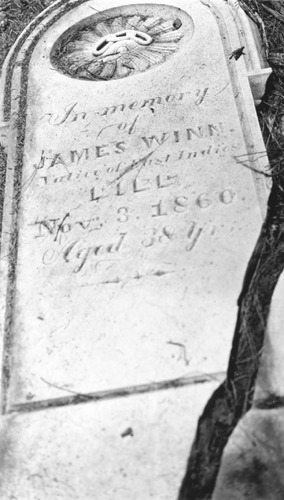 In memory
of
JAMES WINN.
Native of East Indies
Nov. 3. 1860.
Aged 38 Yrs.